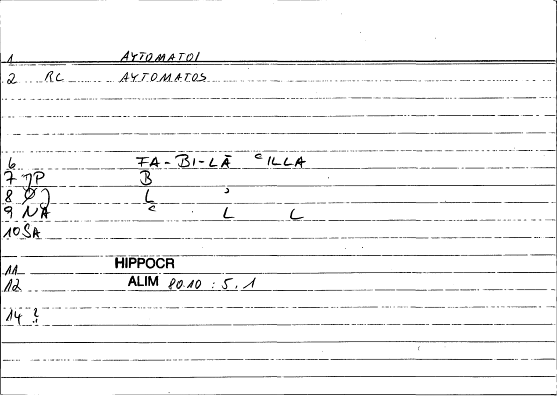 1 AYTOMATOI
2 RC AYTOMATOS
6 FA-BI-LĀ ʿILLA
7 JP B
8 Ø) L ʾ
9 NA ʿ L L
10 SA
11 HIPPOCR
12 ALIM 8010 : 5, 1
14 ?